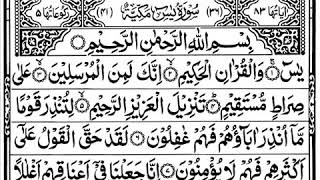 اٰیاتها ۸۳ (۳۶) سُوْرَةُ يٰسٓ مَكِّيَّةٌ (۴۱) رکوعاتها ۵
بِسْمِ اللهِ الرَّحْمٰنِ الرَّحِيْمِ
يٰسٓ ۝١ وَالْقُرْاٰنِ الْحَكِيْمِ ۝٢ اِنَّكَ لَمِنَ الْمُرْسَلِيْنَ ۝٣ عَلٰى
صِرَاطٍ مُّسْتَقِيْمٍ ۝٤ تَنْزِيْلَ الْعَزِيْزِ الرَّحِيْمِ ۝٥ لِتُنْذِرَ قَوْمًا
مَّاۤ اُنْذِرَ اٰبَآؤُهُمْ فَهُمْ غٰفِلُوْنَ ۝٦ لَقَدْ حَقَّ الْقَوْلُ عَلٰۤى
اَكْثَرِهِمْ فَهُمْ لَا يُؤْمِنُوْنَ ۝٧ اِنَّا جَعَلْنَا فِيْۤ اَعْنَاقِهِمْ اَغْلٰلًا